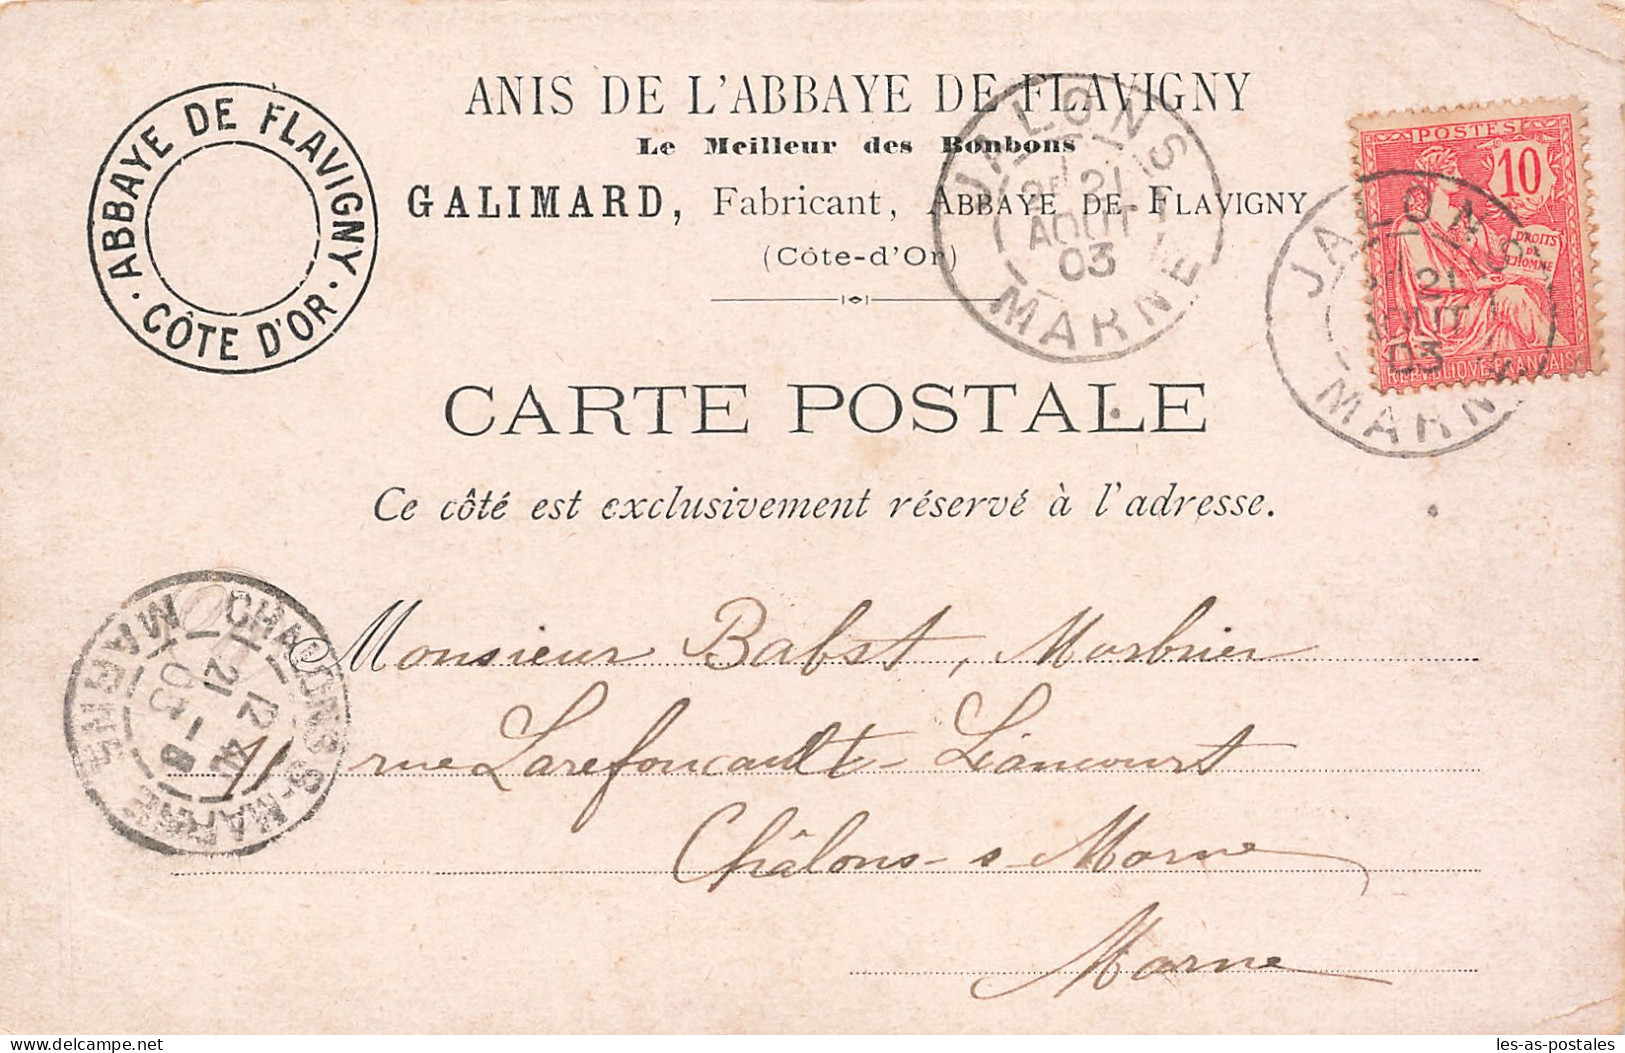 ANIS DE L'ABBAYE DE FLAVIGNY
Le Meilleur des Bonbons
GALIMARD, Fabricant, ABBAYE DE FLAVIGNY
(Côte-d'Or)
ABBAYE DE FLAVIGNY
CÔTE D'OR
JALONS
21
AOUT
03
MARNE
POSTES
10
DROITS
DE
L'HOMME
REPVBLIQVE FRANÇAISE
JALONS
21
AOUT
03
MARNE
CARTE POSTALE
Ce côté est exclusivement réservé à l'adresse.
CHALONS-S-MARNE
12
21 - 8
03
MARNE
Monsieur Babst, Marbrier
11 rue Larefoucault-Liancourt
Châlons-s-Marne
Marne
les-as-postales